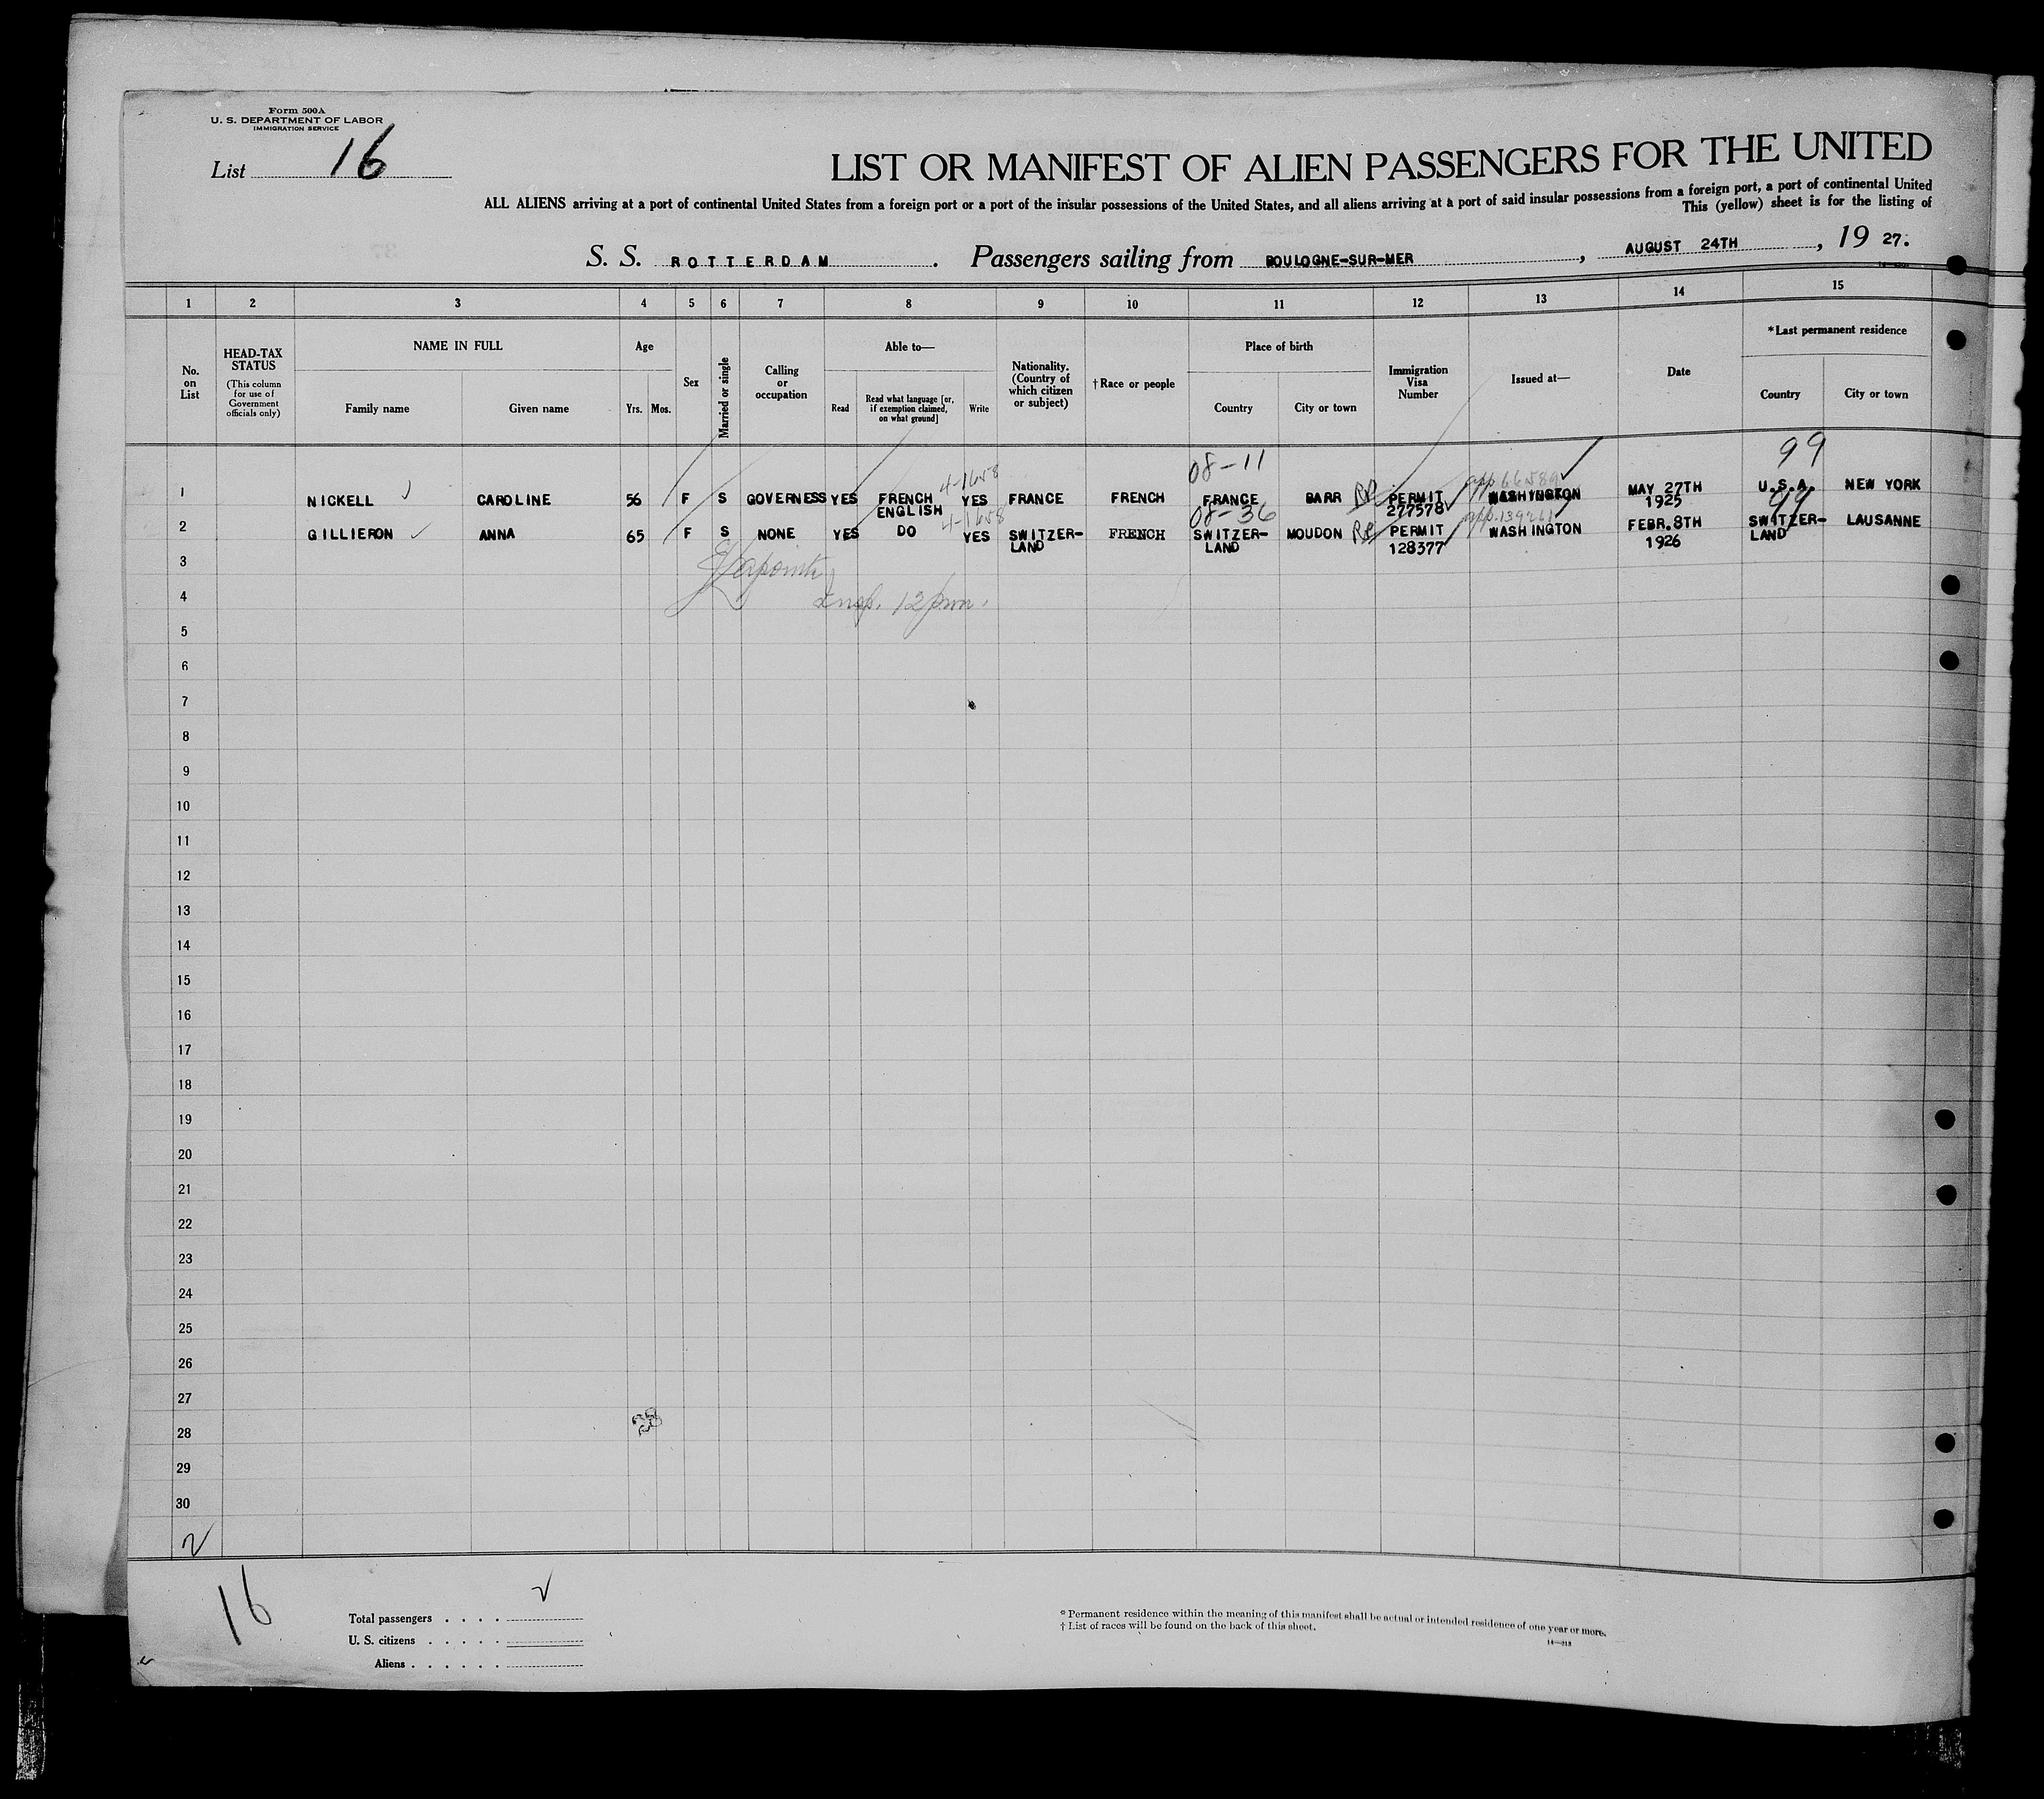 Form 500A
U. S. DEPARTMENT OF LABOR
IMMIGRATION SERVICE
List 16
LIST OR MANIFEST OF ALIEN PASSENGERS FOR THE UNITED
ALL ALIENS arriving at a port of continental United States from a foreign port or a port of the insular possessions of the United States, and all aliens arriving at a port of said insular possessions from a foreign port, a port of continental United
This (yellow) sheet is for the listing of
S. S. ROTTERDAM. Passengers sailing from BOULOGNE-SUR-MER, AUGUST 24TH, 19 27.
1 2 3 4 5 6 7 8 9 10 11 12 13 14 15
No. on List
HEAD-TAX STATUS
(This column for use of Government officials only)
NAME IN FULL
Family name Given name
Age
Yrs. Mos.
Sex
Married or single
Calling or occupation
Able to—
Read
Read what language [or, if exemption claimed, on what ground]
Write
Nationality. (Country of which citizen or subject)
†Race or people
Place of birth
Country City or town
Immigration Visa Number
Issued at—
Date
*Last permanent residence
Country City or town
08-11 99
4-1658
1 NICKELL CAROLINE 56 F S GOVERNESS YES FRENCH YES FRANCE FRENCH FRANCE BARR RP PERMIT WASHINGTON MAY 27TH U.S.A. NEW YORK
ENGLISH 277578 1925
4-1658 08-36 99
2 GILLIERON ANNA 65 F S NONE YES DO YES SWITZER- FRENCH SWITZER- MOUDON RP PERMIT WASHINGTON FEBR.8TH SWITZER- LAUSANNE
LAND LAND 128377 1926 LAND
3
4 Insp. 12pm.
5
6
7
8
9
10
11
12
13
14
15
16
17
18
19
20
21
22
23
24
25
26
27
28
29
30
2
16
Total passengers . . . . 2
U. S. citizens . . . . .
Aliens . . . . . .
* Permanent residence within the meaning of this manifest shall be actual or intended residence of one year or more.
† List of races will be found on the back of this sheet.